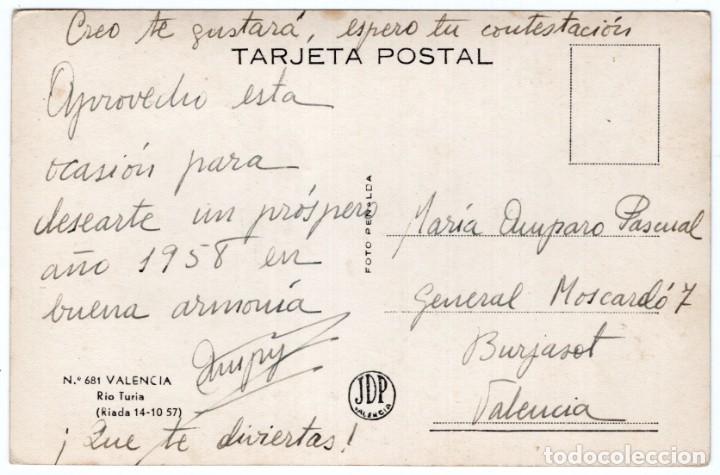 Creo te gustará, espero tu contestación
TARJETA POSTAL
Aprovecho esta
ocasión para
desearte un próspero
año 1958 en
buena armonía
Ampy
FOTO PEÑALBA
María Amparo Pascual
General Moscardó 7
Burjasot
Valencia
N.º 681 VALENCIA
Rio Turia
(Riada 14-10 57)
JDP
VALENCIA
¡Que te diviertas!
todocoleccion